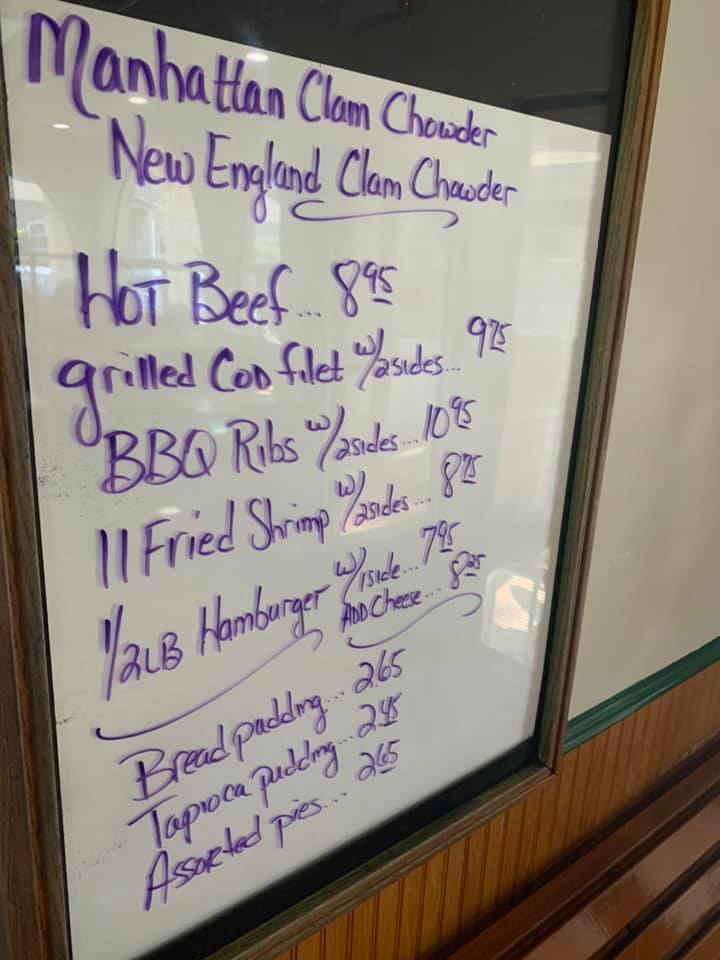 Manhattan Clam Chowder
New England Clam Chowder
Hot Beef... 8 95
grilled Cod filet w/2sides... 9 75
BBQ Ribs w/2sides... 10 95
11 Fried Shrimp w/2sides... 8 75
1/2 LB Hamburger w/1side... 7 95
ADD Cheese... 8 25
Bread pudding... 2 65
Tapioca pudding... 2 45
Assorted pies... 2 65